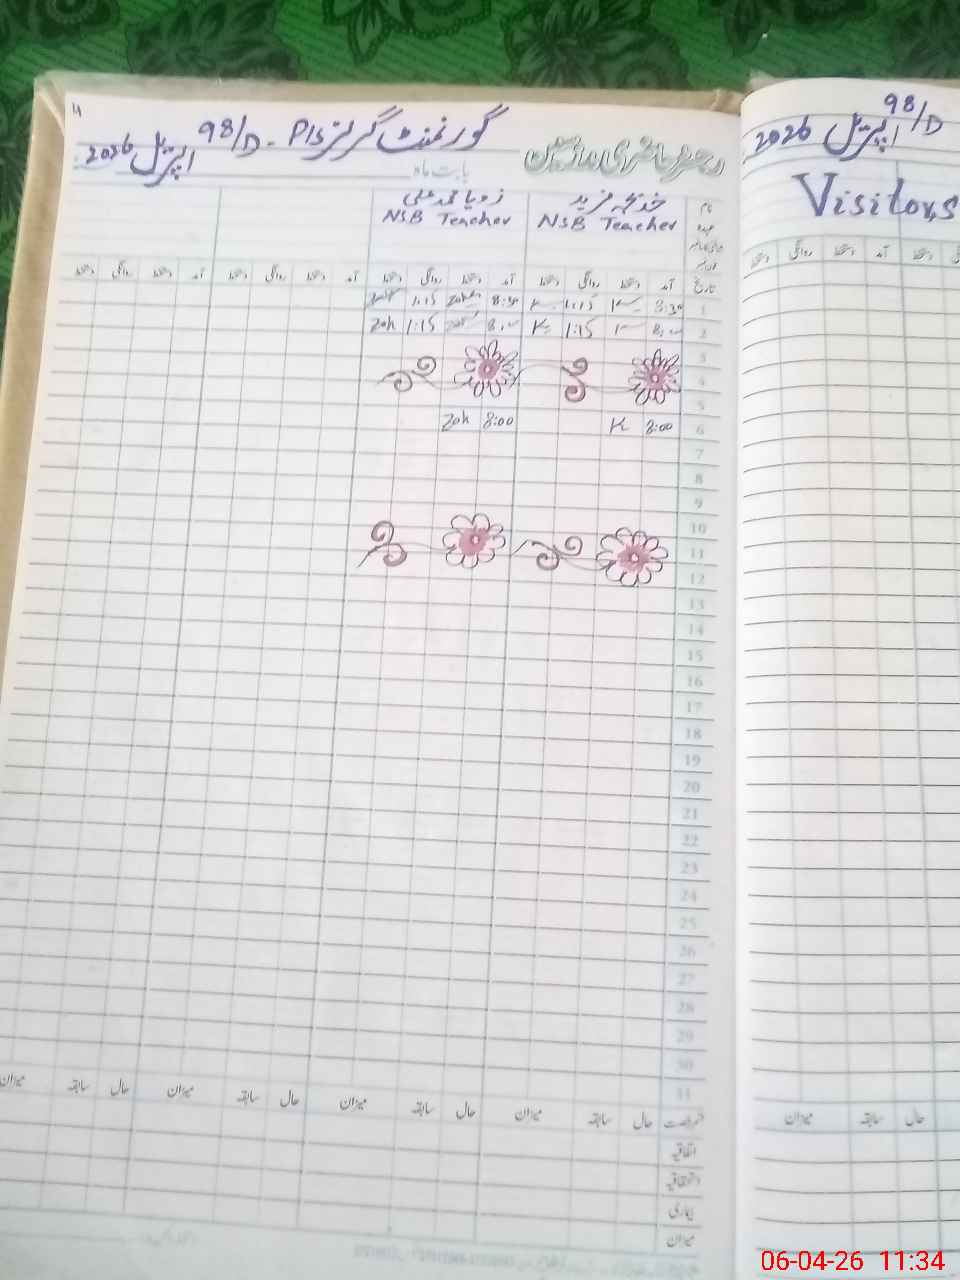 گورنمنٹ گرلز P/s - 98/D اپریل 2026
بابت ماہ
خدیجہ فرید
NSB Teacher
زویا محمد علی
NSB Teacher
نام
عہدہ
تاریخ
آمد دستخط روانگی دستخط آمد دستخط روانگی دستخط آمد دستخط روانگی دستخط آمد دستخط روانگی دستخط
1 8:30 K 1:15 K 8:30 Zoh 1:15
2 8:00 K 1:15 K 8:00 1:15 Zoh
3
4
5
6 8:00 K 8:00 Zoh
7
8
9
10
11
12
13
14
15
16
17
18
19
20
21
22
23
24
25
26
27
28
29
30
31
رخصت حال سابقہ میزان حال سابقہ میزان حال سابقہ میزان حال سابقہ میزان
اتفاقیہ
بیماری
میزان
98/D
اپریل 2026
Visitors
آمد دستخط روانگی دستخط
حال سابقہ میزان
06-04-26 11:34